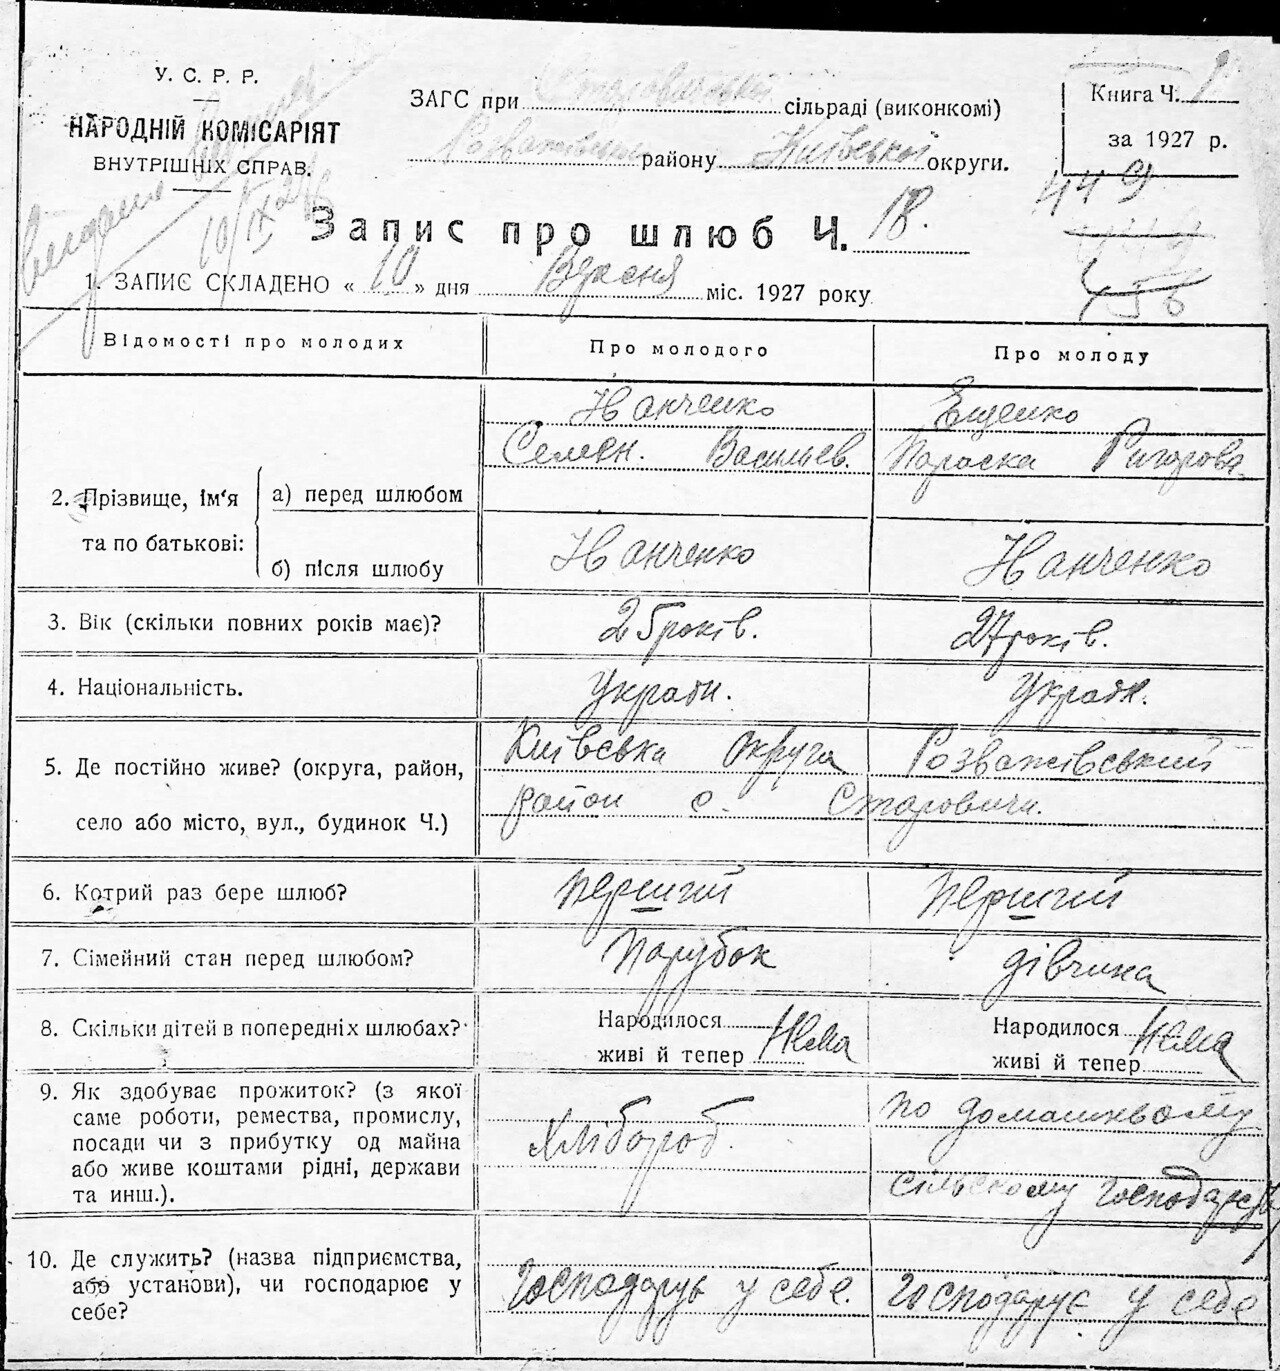 У. С. Р. Р.
НАРОДНІЙ КОМІСАРІЯТ
ВНУТРІШНІХ СПРАВ.
ЗАГС при Старовицькій сільраді (виконкомі)
Розважівського району Київської округи.
Книга Ч. 1
за 1927 р.
449
10/IX
Запис про шлюб Ч. 18.
1. ЗАПИС СКЛАДЕНО « 10 » дня Вересня міс. 1927 року
Відомості про молодих
Про молодого
Про молоду
2. Прізвище, ім'я та по батькові:
а) перед шлюбом
Іванченко
Семен. Васильев.
Ещенко
Параска Григорова
б) після шлюбу
Іванченко
Іванченко
3. Вік (скільки повних років має)?
25 років.
27 років.
4. Національність.
Украін.
Украін.
5. Де постійно живе? (округа, район,
село або місто, вул., будинок Ч.)
Київська округа Розважівський
район с. Старовичи.
6. Котрий раз бере шлюб?
перший
перший
7. Сімейний стан перед шлюбом?
парубок
дівчина
8. Скільки дітей в попередніх шлюбах?
Народилося
живі й тепер Нема
Народилося
живі й тепер Нема
9. Як здобуває прожиток? (з якої
саме роботи, ремества, промислу,
посади чи з прибутку од майна
або живе коштами рідні, держави
та инш.).
Хлібороб.
по домашньому
сільскому господарству
10. Де служить? (назва підприємства,
або установи), чи господарює у
себе?
Господарує у себе.
Господарує у себе